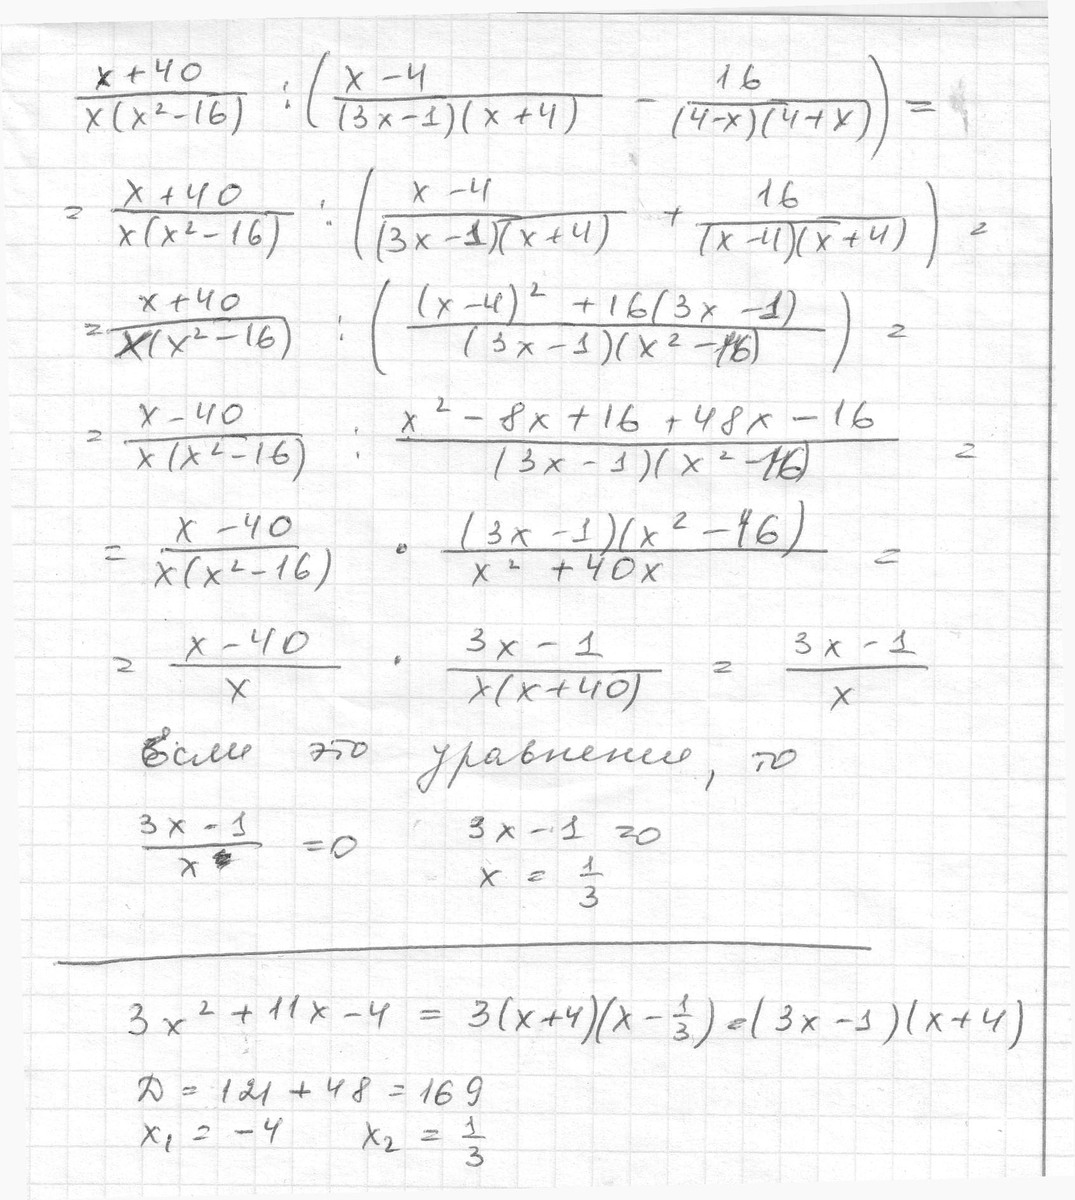 (x+40)/(x(x²-16)) : ((x-4)/((3x-1)(x+4)) - 16/((4-x)(4+x))) =
= (x+40)/(x(x²-16)) : ((x-4)/((3x-1)(x+4)) + 16/((x-4)(x+4))) =
= (x+40)/(x(x²-16)) : (((x-4)²+16(3x-1))/((3x-1)(x²-16))) =
= (x-40)/(x(x²-16)) : (x²-8x+16+48x-16)/((3x-1)(x²-16)) =
= (x-40)/(x(x²-16)) · ((3x-1)(x²-16))/(x²+40x) =
= (x-40)/x · (3x-1)/(x(x+40)) = (3x-1)/x
Если это уравнение, то
(3x-1)/x =0 3x-1=0
x = 1/3
3x²+11x-4 = 3(x+4)(x-1/3)=(3x-1)(x+4)
D = 121+48=169
x₁ = -4 x₂ = 1/3